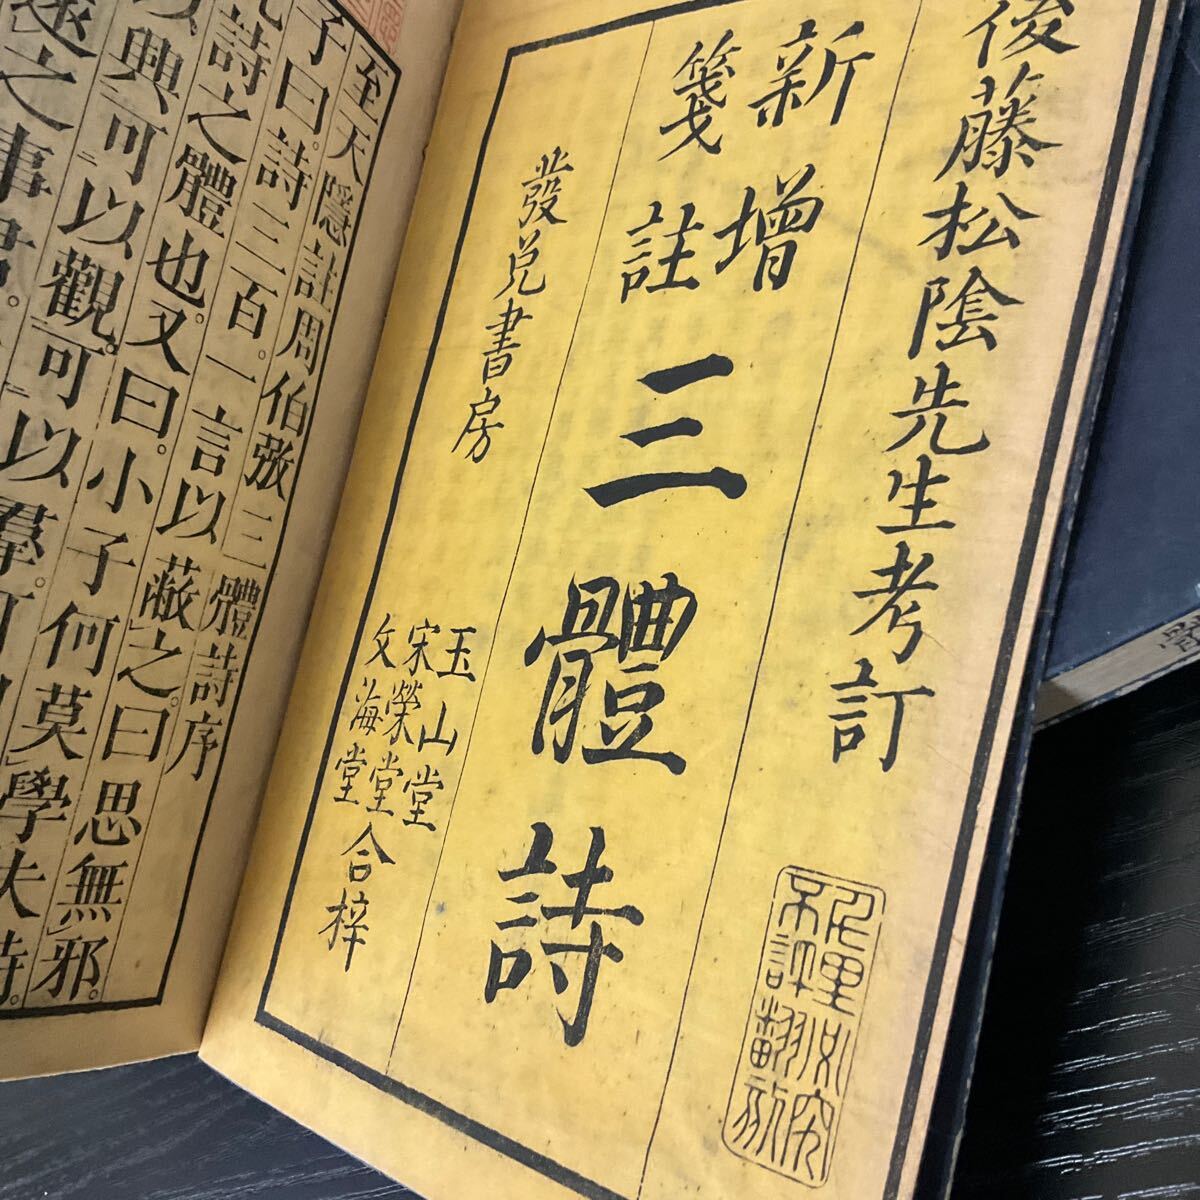 後藤松陰先生考訂
新增
箋註
三體詩
發兌書房
玉山堂
宋榮堂
文海堂
合梓
里必究
不許翻刻
至天隱註周伯弜三體詩序
子曰。詩三百。一言以蔽之。曰思無邪。
詩之體也。又曰。小子何莫學夫詩。
以興可以觀。可以羣。可以
遠之事君。